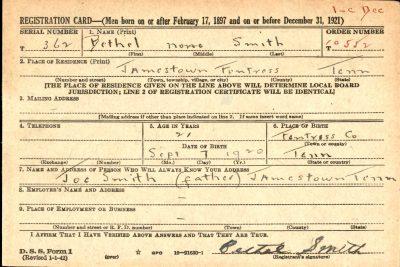 1-C Dec
REGISTRATION CARD—(Men born on or after February 17, 1897 and on or before December 31, 1921)
SERIAL NUMBER 1. NAME (Print) ORDER NUMBER
T 362 Bethel none Smith 10552
(First) (Middle) (Last)
2. PLACE OF RESIDENCE (Print)
Jamestown Fentress Tenn
(Number and street) (Town, township, village, or city) (County) (State)
[THE PLACE OF RESIDENCE GIVEN ON THE LINE ABOVE WILL DETERMINE LOCAL BOARD
JURISDICTION; LINE 2 OF REGISTRATION CERTIFICATE WILL BE IDENTICAL]
3. MAILING ADDRESS
[Mailing address if other than place indicated on line 2. If same insert word same]
4. TELEPHONE 5. AGE IN YEARS 6. PLACE OF BIRTH
21 Fentress Co
DATE OF BIRTH (Town or county)
Sept 7 1920 Tenn
(Exchange) (Number) (Mo.) (Day) (Yr.) (State or country)
7. NAME AND ADDRESS OF PERSON WHO WILL ALWAYS KNOW YOUR ADDRESS
Joe Smith (father) Jamestown Tenn
8. EMPLOYER'S NAME AND ADDRESS
9. PLACE OF EMPLOYMENT OR BUSINESS
(Number and street or R. F. D. number) (Town) (County) (State)
I AFFIRM THAT I HAVE VERIFIED ABOVE ANSWERS AND THAT THEY ARE TRUE.
D. S. S. Form 1
(Revised 1-1-42) GPO 16—21630-1 Bethel Smith
(Registrant's signature)